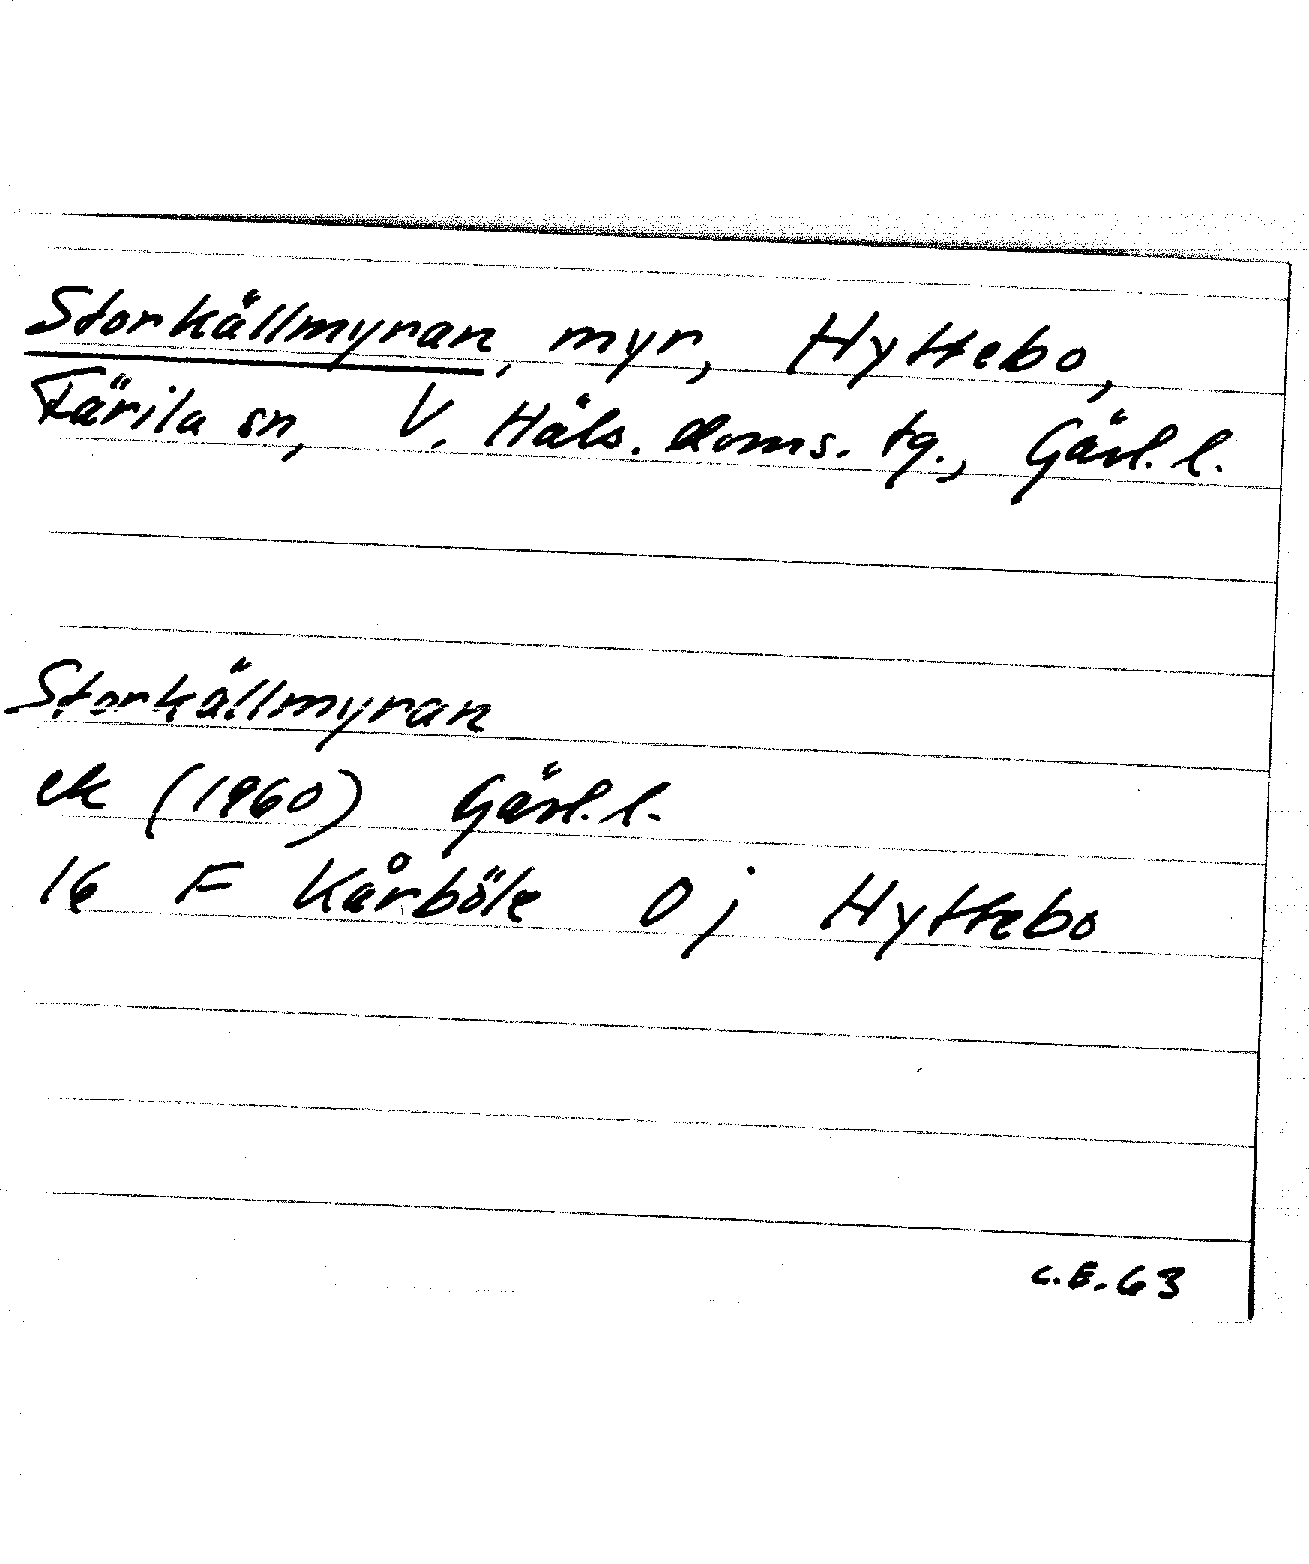 Storkällmyran, myr, Hyttebo,
Färila sn, V. Häls. doms. tg., Gävl. l.
Storkällmyran
ek (1960) Gävl. l.
16 F Kårböle 0 j Hyttebo
C.E. 63